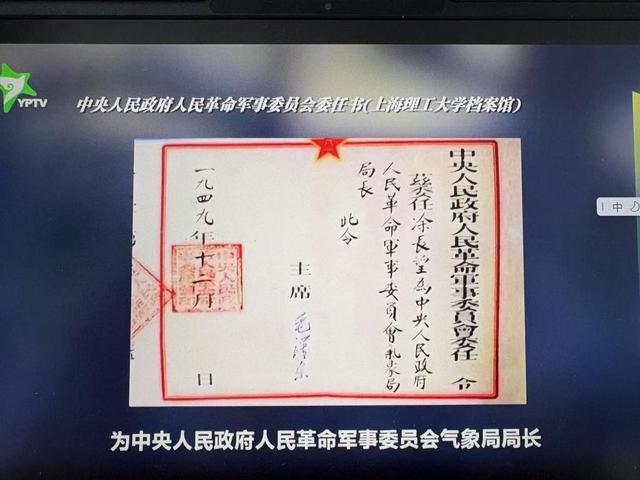 YPTV
中央人民政府人民革命军事委员会委任书(上海理工大学档案馆)
中央人民政府人民革命軍事委員會委任令
茲任涂長望為中央人民政府
人民革命軍事委員會氣象局
局長 此令
主席 毛澤東
一九四九年十二月 日
1 中
为中央人民政府人民革命军事委员会气象局局长